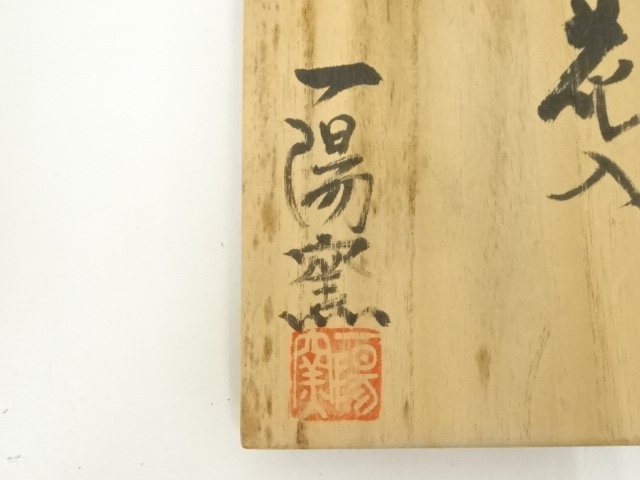 花入
一陽窯
一陽窯